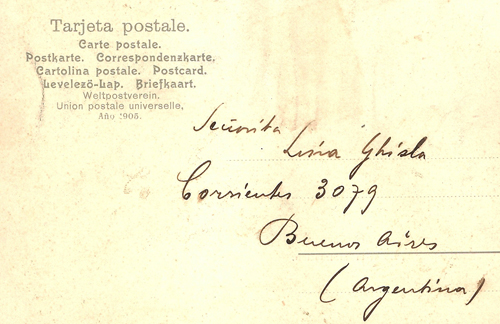 Tarjeta postale.
Carte postale.
Postkarte. Correspondenzkarte.
Cartolina postale. Postcard.
Levelező-Lap. Briefkaart.
Weltpostverein.
Union postale universelle,
Año 1905.
Señorita
Ghisla
Corrientes 3079
Buenos Aires
(Argentina)